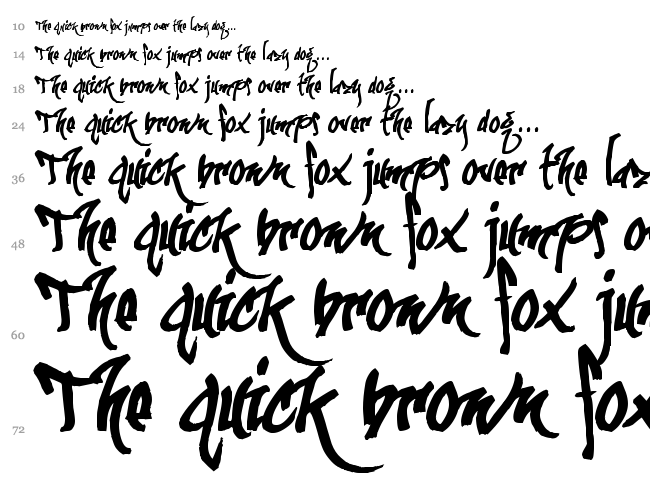 10 The quick brown fox jumps over the lazy dog...
14 The quick brown fox jumps over the lazy dog...
18 The quick brown fox jumps over the lazy dog...
24 The quick brown fox jumps over the lazy dog...
36 The quick brown fox jumps over the laz
48 The quick brown fox jumps o
60 The quick brown fox ju
72 The quick brown fox